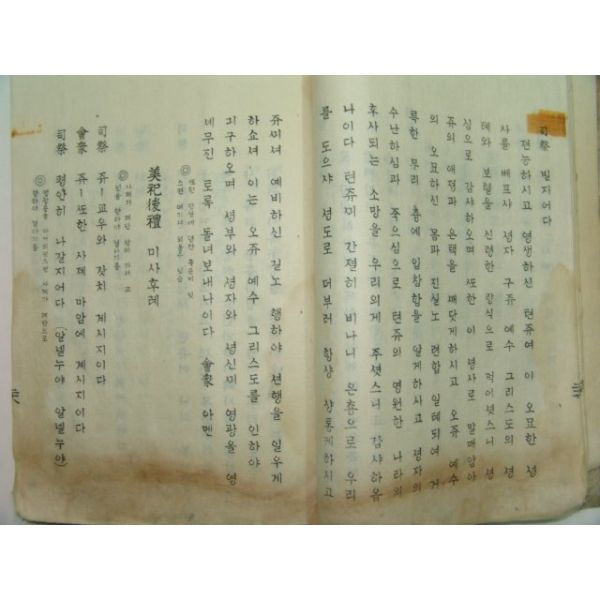 司祭 빌지어다
젼능하시고 영생하신 텬쥬여 이 오묘한 셩
사를 베프사 셩자 구쥬 예수 그리스도의 셩
톄와 보혈을 신령한 감식으로 먹이셧스니 셩
심으로 감샤하오며 또한 이 셩사로 말매암아
쥬의 애졍과 은택을 깨닷게하시고 오쥬 예수
의 오묘하신 몸과 진실노 련합 일톄되여 거
룩한 무리 춍에 일참함을 알게하시고 셩자의
수난하심과 죽으심으로 텬쥬의 영원한 나라의
후사되는 소망을 우리의게 주셧스니 감샤하옴
나이다 텬쥬끠 간졀히 비나니 은춍으로 우리
를 도으샤 셩도로 더부러 항샹 샹통케하시고
쥬끠셔 예비하신 길노 행하야 션행을 일우게
하쇼셔 이는 오쥬 예수 그리스도를 인하야
긔구하오며 셩부와 셩자와 셩신끠 영광을 영
세무진 토록 돌녀보내나이다 會衆 아멘
美祀後禮 미사후례
司祭 쥬ㅣ교우와 갓치 계시지이다
會衆 쥬ㅣ또한 사제 마암에 계시지이다
司祭 평안히 나갈지어다 (알넬누야 알넬누야)